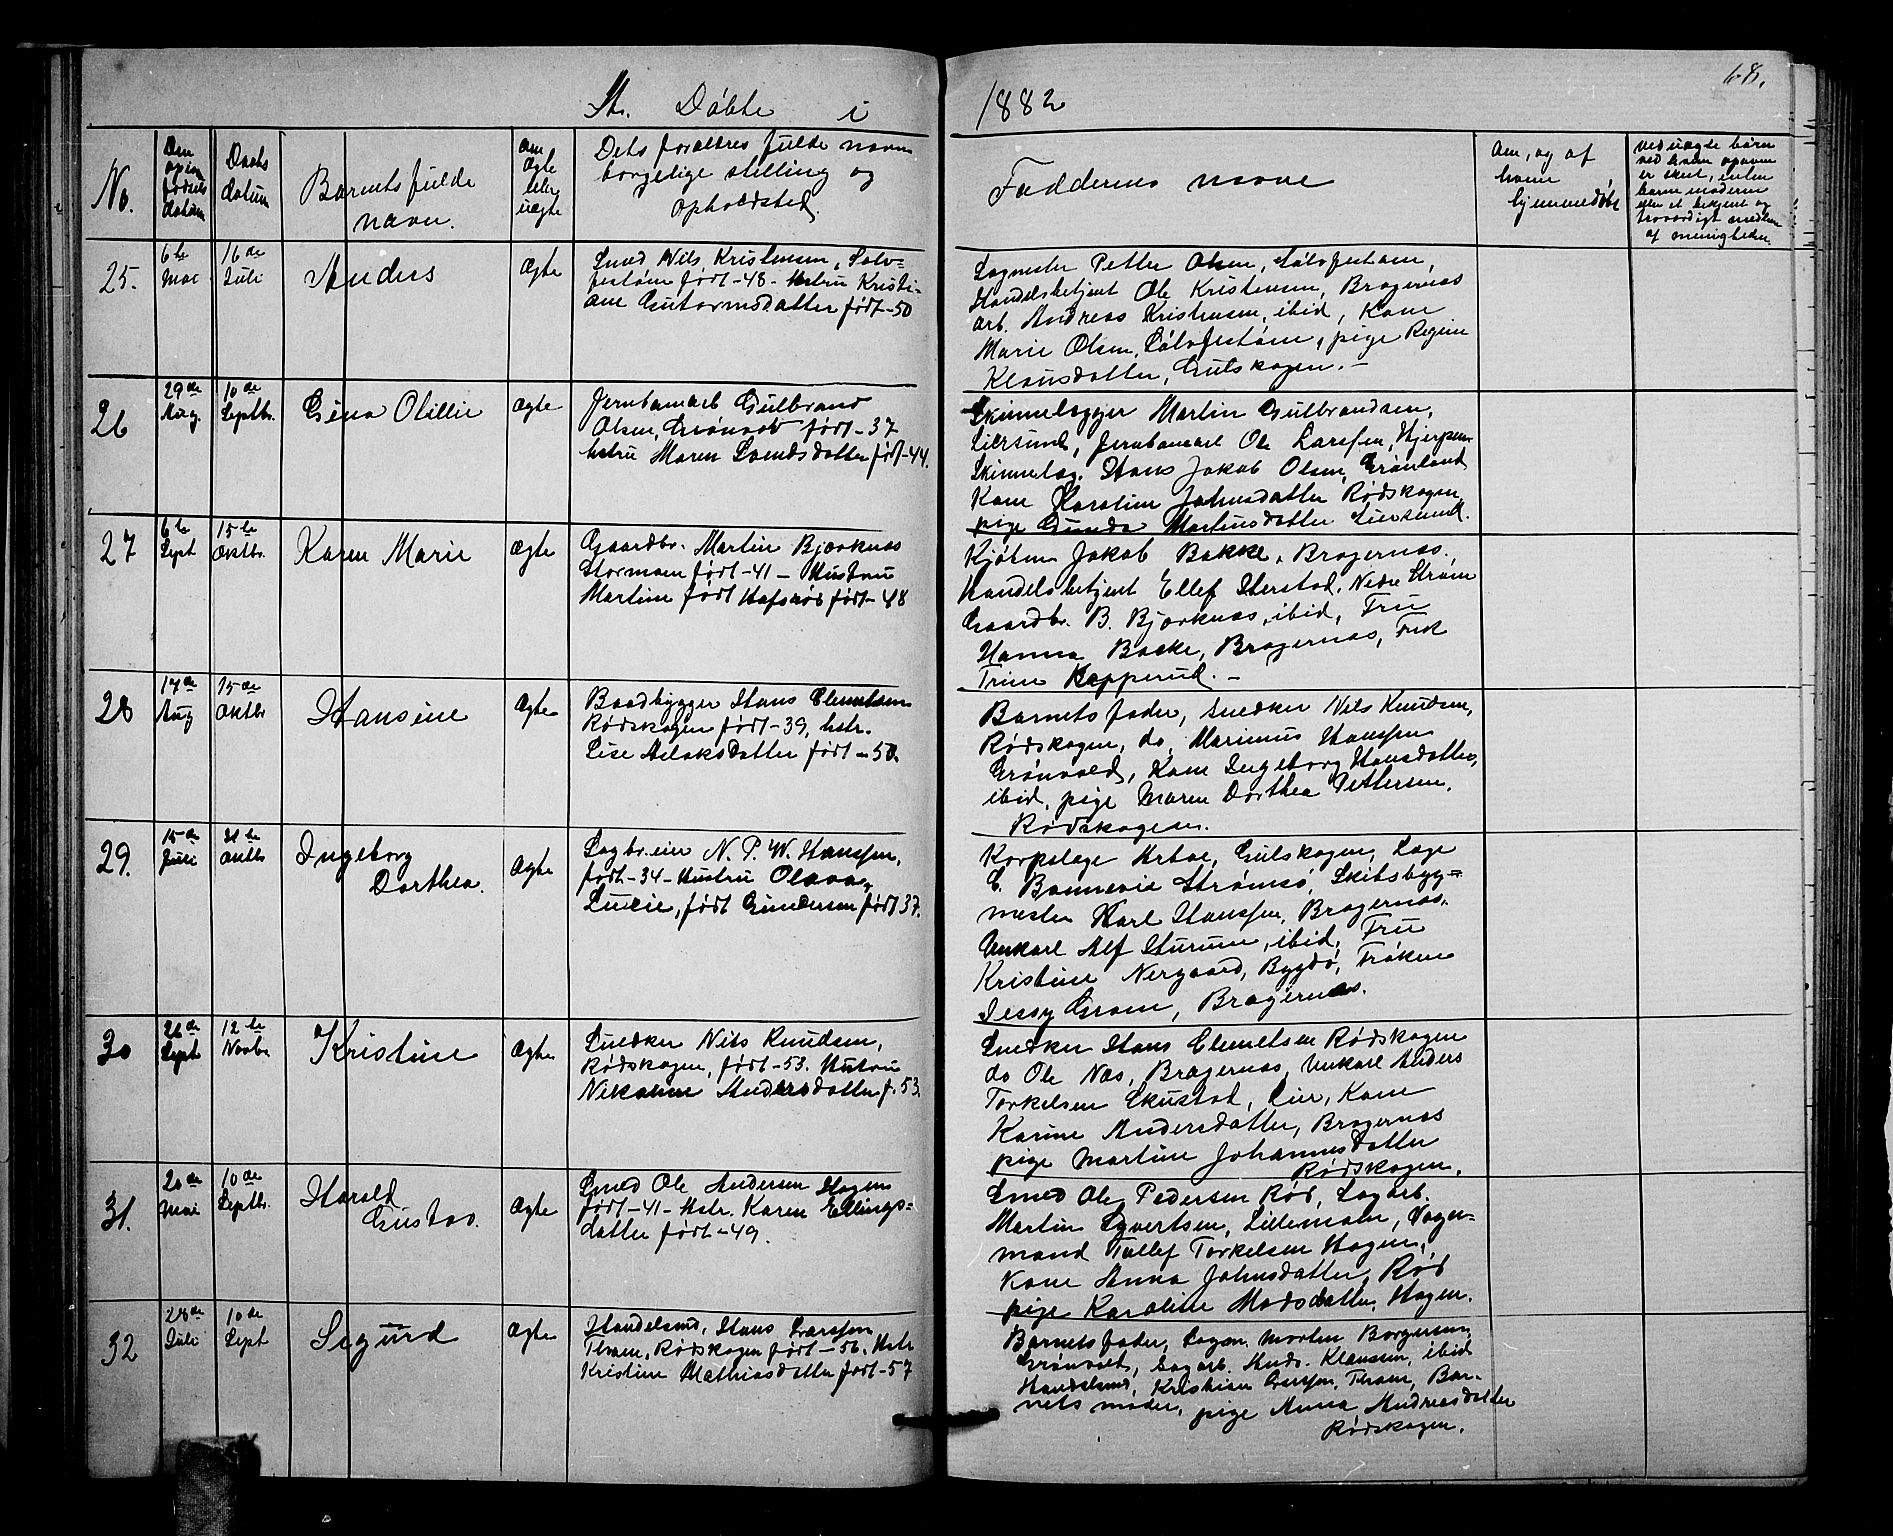 68.
St. Døbte i 1882
No.
Den opgivne fødsels datum
Daabs datum
Barnets fulde navn.
Om Ægte eller uægte
Dets forældres fulde navn
borgelige stilling og
opholdsted.
Faddernes navne
Om, og af hvem hjemmedøbt
Ved uægte børn
25.
6te Mai
16de Juli
Anders
Ægte
Smed Nils Kristensen, Sølv-
festøm født -48- Hstru Kristi-
ane Gutormsdatter født -50
Sagmester Petter Olsen, Sølvfestøm,
Handelsbetjent Ole Kristensen, Bragernæs
arb. Andreas Kristensen, ibid, Kone
Marie Olsen, Sølvfestøm, pige Regine
Klausdatter, Gulskogen. -
26
29de Aug.
10de Septbr.
Gina Otillie
Ægte
Jernbanearb Gulbrand
Olsen, Grønvold født -37
hstru Maren Svendsdatter født -44.
Skinnelægger Martin Gulbrandsen,
Liersund, Jernbanearb Ole Larssen, Hjerpen
Skinnelæg. Hans Jakob Olsen, Grønland
Kone Karoline Johnsdatter Rødskogen,
pige Gunda Martinsdatter Liersund.
27
6te Sept
15te Oktbr.
Karen Marie
Ægte
Gaardbr. Martin Bjørknæs
Stormoen født -41- Hustru
Martine født Hafsrød født -48
Kjøbm Jakob Bakke, Bragernæs.
Handelsbetjent Ellef Sterstad, Nedre Strøm
Gaardbr. B. Bjørknæs, ibid, Fru
Hanna Bakke, Bragernæs, Frk
Trine Kopperud. -
28
17de Aug
15de Oktbr
Hansine
Ægte
Baadbygger Hans Clemetsen
Rødskogen født -39, hstr.
Lise Aslaksdatter født -50.
Barnets fader, Snedker Nils Knudsen,
Rødskogen, do, Marinius Hanssen
Grønvold, Kone Ingeborg Hansdatter,
ibid, pige Maren Dorthea Pettersen,
Rødskogen.
29.
15de Juli
31te Oktb
Ingeborg
Dorthea.
Ægte
Sagbr.eier N. P. W. Hanssen,
født -34- Hustru Olava
Lucie, født Gundersen født 37.
Korpslæge Arboe, Gulskogen, Læge
C. Bonnevie Strømsø, Skibsbyg=
mester Karl Hanssen, Bragernæs.
Unkarl Alf Sturum, ibid, Fru
Kristine Nergaard, Bygdø, Frøken
Jessy Gram, Bragernæs.
30
26de Sept
12te Novbr
Kristine
Ægte
Snedker Nils Knudsen,
Rødskogen, født -53. Hustru
Nikoline Andersdatter f. 53.
Snedker Hans Clemetsen Rødskogen
do Ole Næs, Bragernæs, Unkarl Anders
Torkelsen Skustad, Lier, Kone
Karine Andersdatter, Bragernæs
pige Martine Johannesdatter
Rødskogen.
31.
20de Mai
10de Septbr.
Harald
Gustav.
Ægte
Smed Ole Andersen Hagen
født -41- Hstr. Karen Ellings=
datter født -49.
Smed Ole Pedersen Rød, Sagarb.
Martin Syvertsen, Lillemoen, Vogn=
mand Tollef Torkelsen Hagen,
Kone Anna Johnsdatter, Rød
pige Karoline Madsdatter, Hagen.
32
28de Juli
10de Sept
Sigurd
Ægte
Handelsmd, Hans Larssen
Thram, Rødskogen født -56, Hstr
Kristine Mathiasdatter født -57
Barnets fader, Sagm. Morten Borgersen,
Grønvold, Sagarb. Ands. Klaussen, ibid
Handelsmd, Kristian Larssen, Thram, Bar-
nets moder, pige Anna Andreasdatter
Rødskogen.